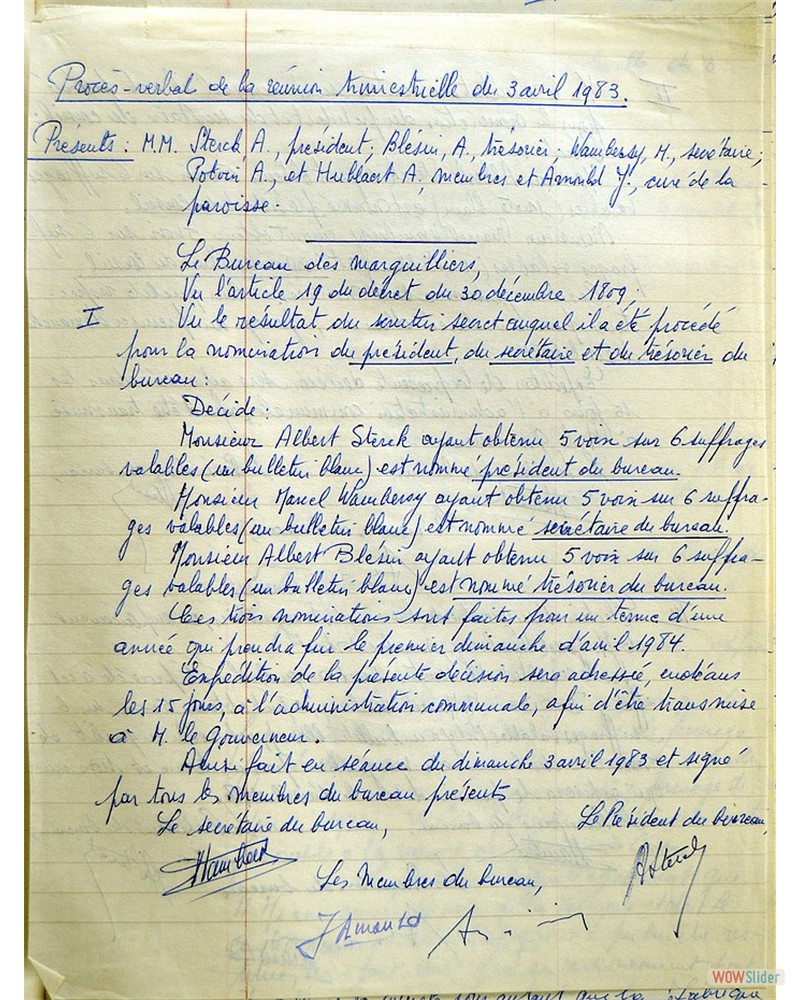 Procès-verbal de la réunion trimestrielle du 3 avril 1983.
Présents : M.M. Sterck, A., président ; Blésin, A., trésorier ; Wambersy, M., secrétaire ;
Potvin A., et Hublaert A, membres et Arnould J., curé de la
paroisse.
Le Bureau des marguilliers,
Vu l'article 19 du décret du 30 décembre 1809 ;
I Vu le résultat du scrutin secret auquel il a été procédé
pour la nomination du président, du secrétaire et du trésorier du
bureau :
Décide :
Monsieur Albert Sterck ayant obtenu 5 voix sur 6 suffrages
valables (un bulletin blanc) est nommé président du bureau.
Monsieur Marcel Wambersy ayant obtenu 5 voix sur 6 suffra-
ges valables (un bulletin blanc) est nommé secrétaire du bureau.
Monsieur Albert Blésin ayant obtenu 5 voix sur 6 suffra-
ges valables (un bulletin blanc) est nommé trésorier du bureau.
Ces trois nominations sont faites pour un terme d'une
année qui prendra fin le premier dimanche d'avril 1984.
Expédition de la présente décision sera adressée, endéans
les 15 jours, à l'administration communale, afin d'être transmise
à M. le Gouverneur.
Ainsi fait en séance du dimanche 3 avril 1983 et signé
par tous les membres du bureau présents
Le secrétaire du bureau, Le Président du bureau,
ASterck
Les Membres du bureau,
J Arnould
WOWSlider